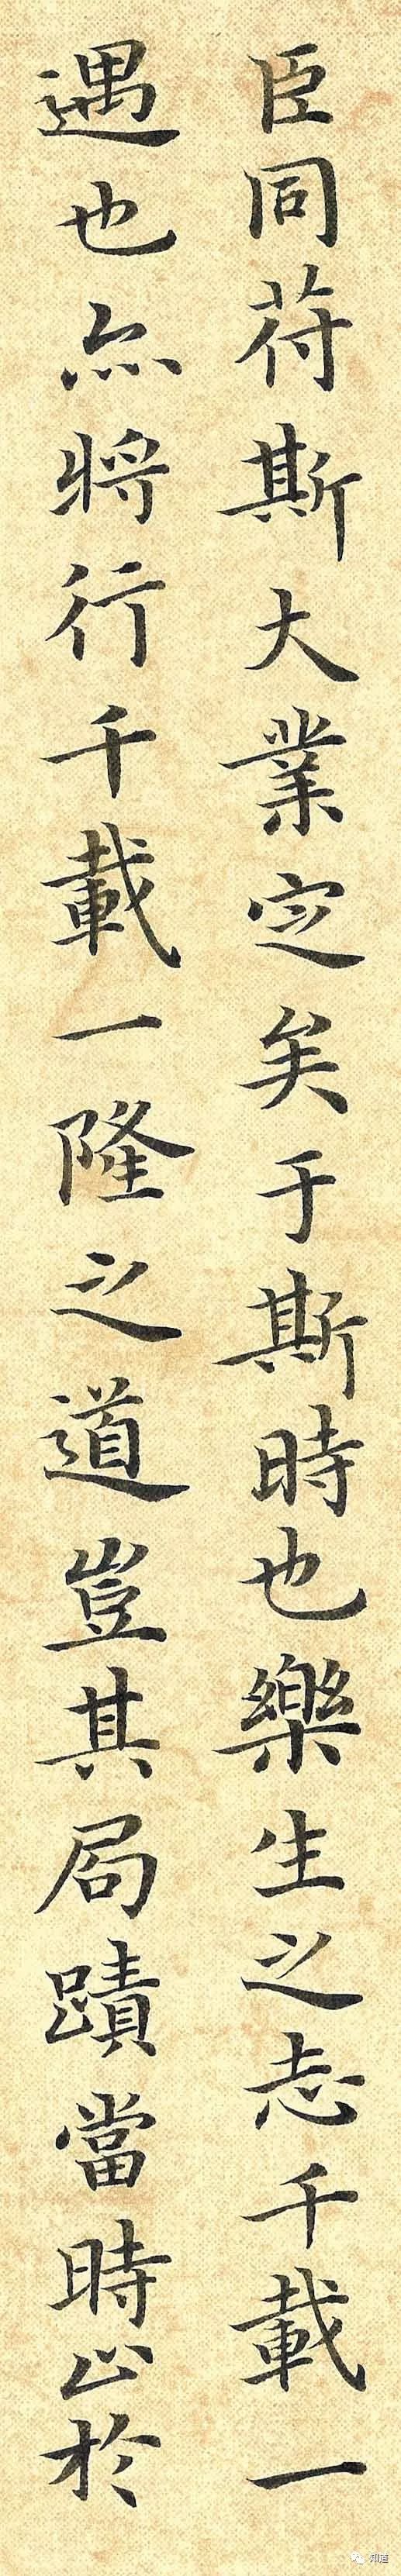 臣同苻斯大業定矣于斯時也樂生之志千載一
遇也亦將行千載一隆之道豈其局蹟當時止於
知道